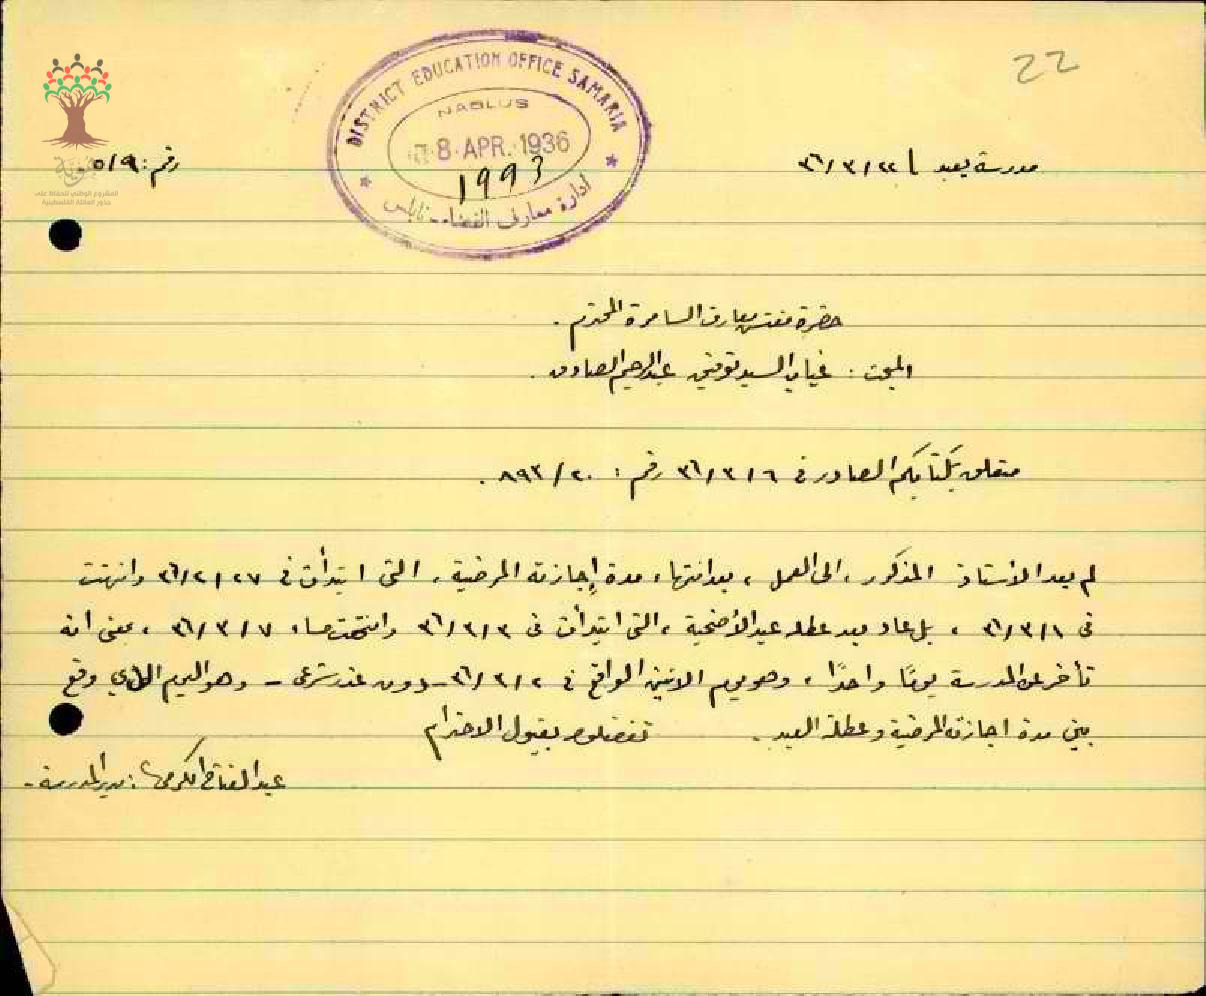 22
DISTRICT EDUCATION OFFICE SAMARIA
NABLUS
8 APR. 1936
1993
ادارة معارف القضاء - نابلس
المشروع الوطني للحفاظ على
جذور العائلة الفلسطينية
مدرسة يعبد ٣٦/٣/٢٢
رقم: ٥/٩
حضرة مفتش معارف السامرة المحترم.
البحث: غياب السيد توفيق عبد الرحيم الصادق.
متعلق بكتابكم الصادر في ٣٦/٣/٦ رقم: ٨٩٣/٢٠.
لم يعد الأستاذ المذكور، الى العمل، بعد انتهاء مدة إجازته المرضية، التى ابتدأت فى ٣٦/٢/٢٧ وانتهت
فى ٣٦/٣/١، بل عاد بعد عطلة عيد الأضحية، التى ابتدأت فى ٣٦/٣/٣ وانتهت مساء ٣٦/٣/٧، بمعنى انه
تأخر عن المدرسة يومًا واحدًا، وهو يوم الاثنين الواقع فى ٣٦/٣/٢ - دون عذر شرعى - وهو اليوم الذي وقع
بين مدة اجازته المرضية وعطلة العيد. تفضلوا بقبول الاحترام
عبد الفتاح الكرمي: مدير المدرسة -